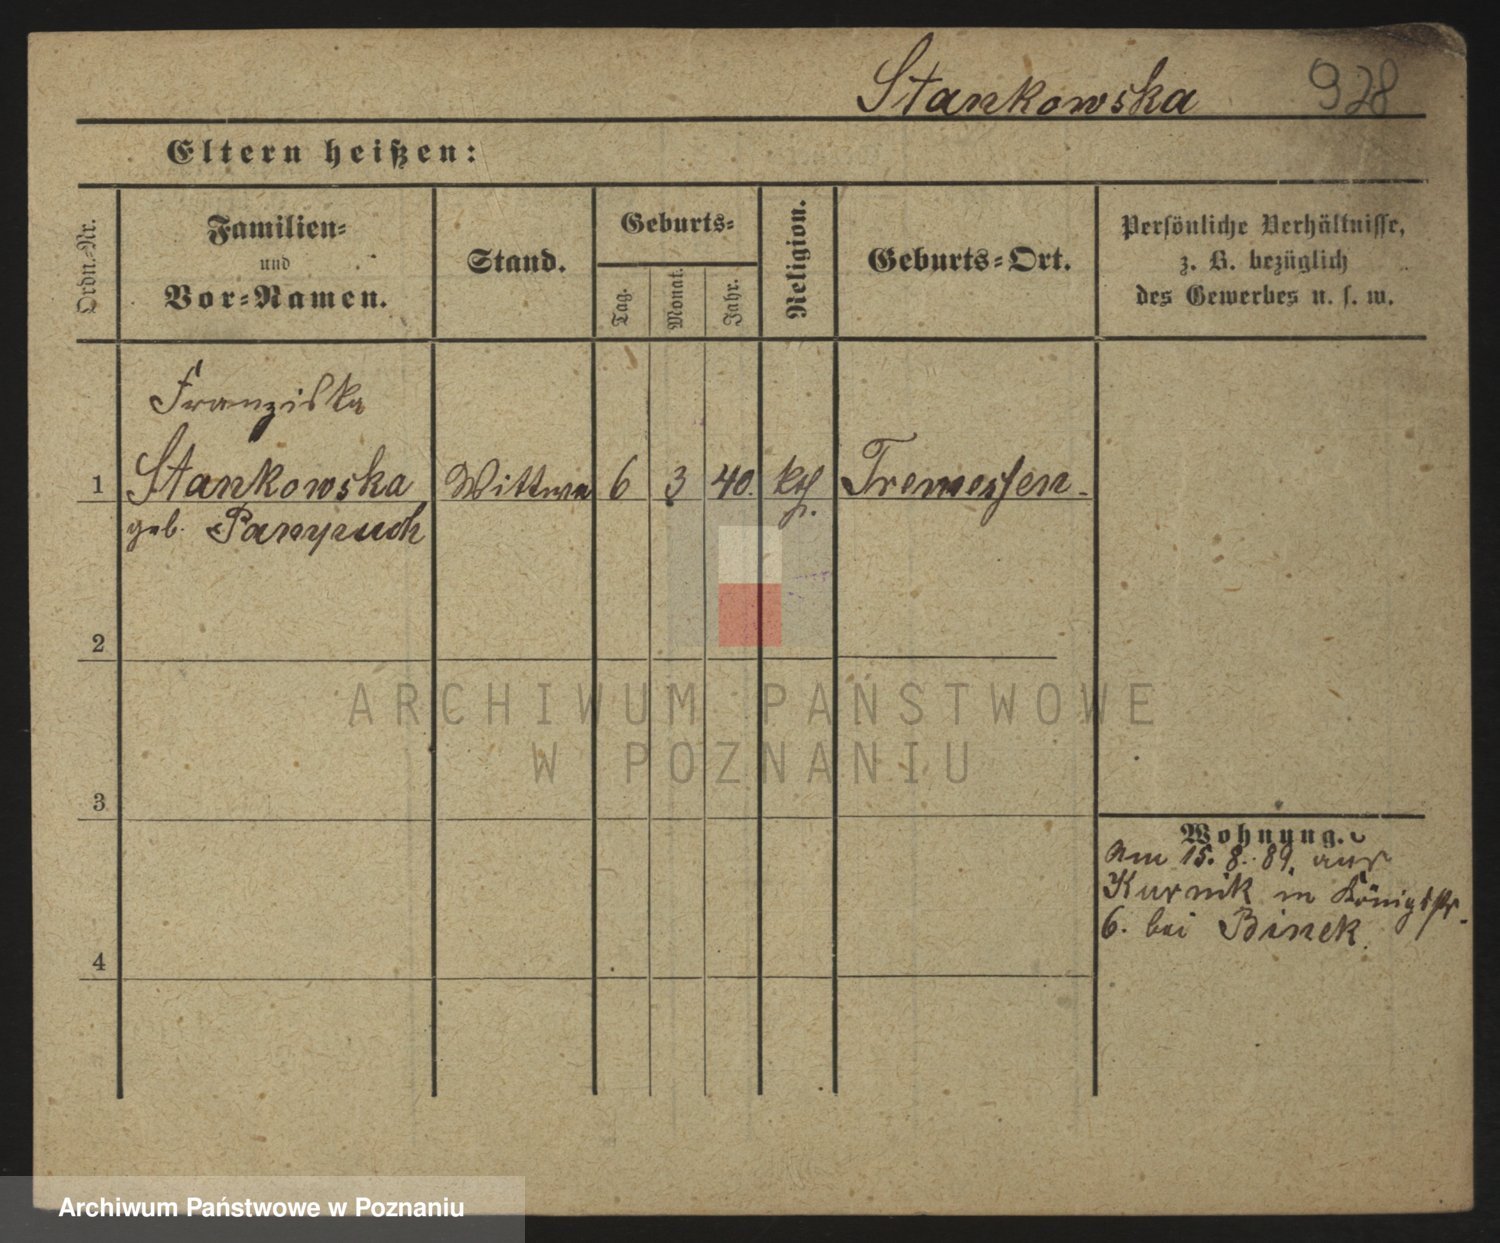 Stankowska 928
Eltern heißen:
Ordn.-Nr.
Familien-
und
Vor-Namen.
Stand.
Geburts-
Tag.
Monat.
Jahr.
Religion.
Geburts-Ort.
Persönliche Verhältnisse,
z. B. bezüglich
des Gewerbes u. s. w.
Franziska
1 Stankowska Wittwe 6 3 40. kth. Tremessen.
geb.
2
3
4
Wohnung.
Am 15. 8. 89. aus
Kurnik in Königstr.
6. bei Binek.
ARCHIWUM PAŃSTWOWE
W POZNANIU
Archiwum Państwowe w Poznaniu